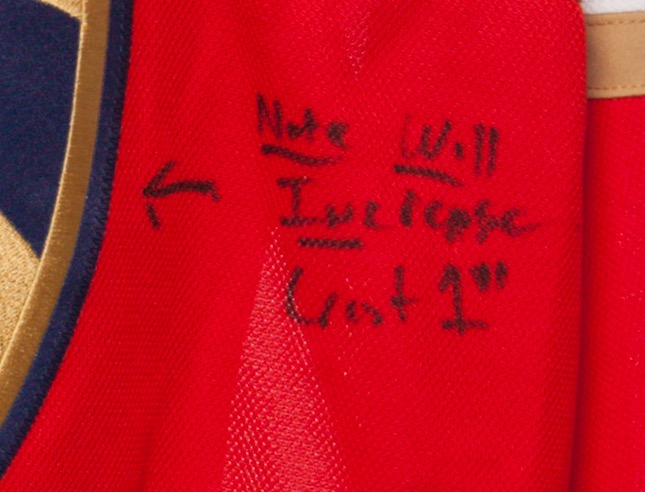 Note Will
Increase
Crest 1"